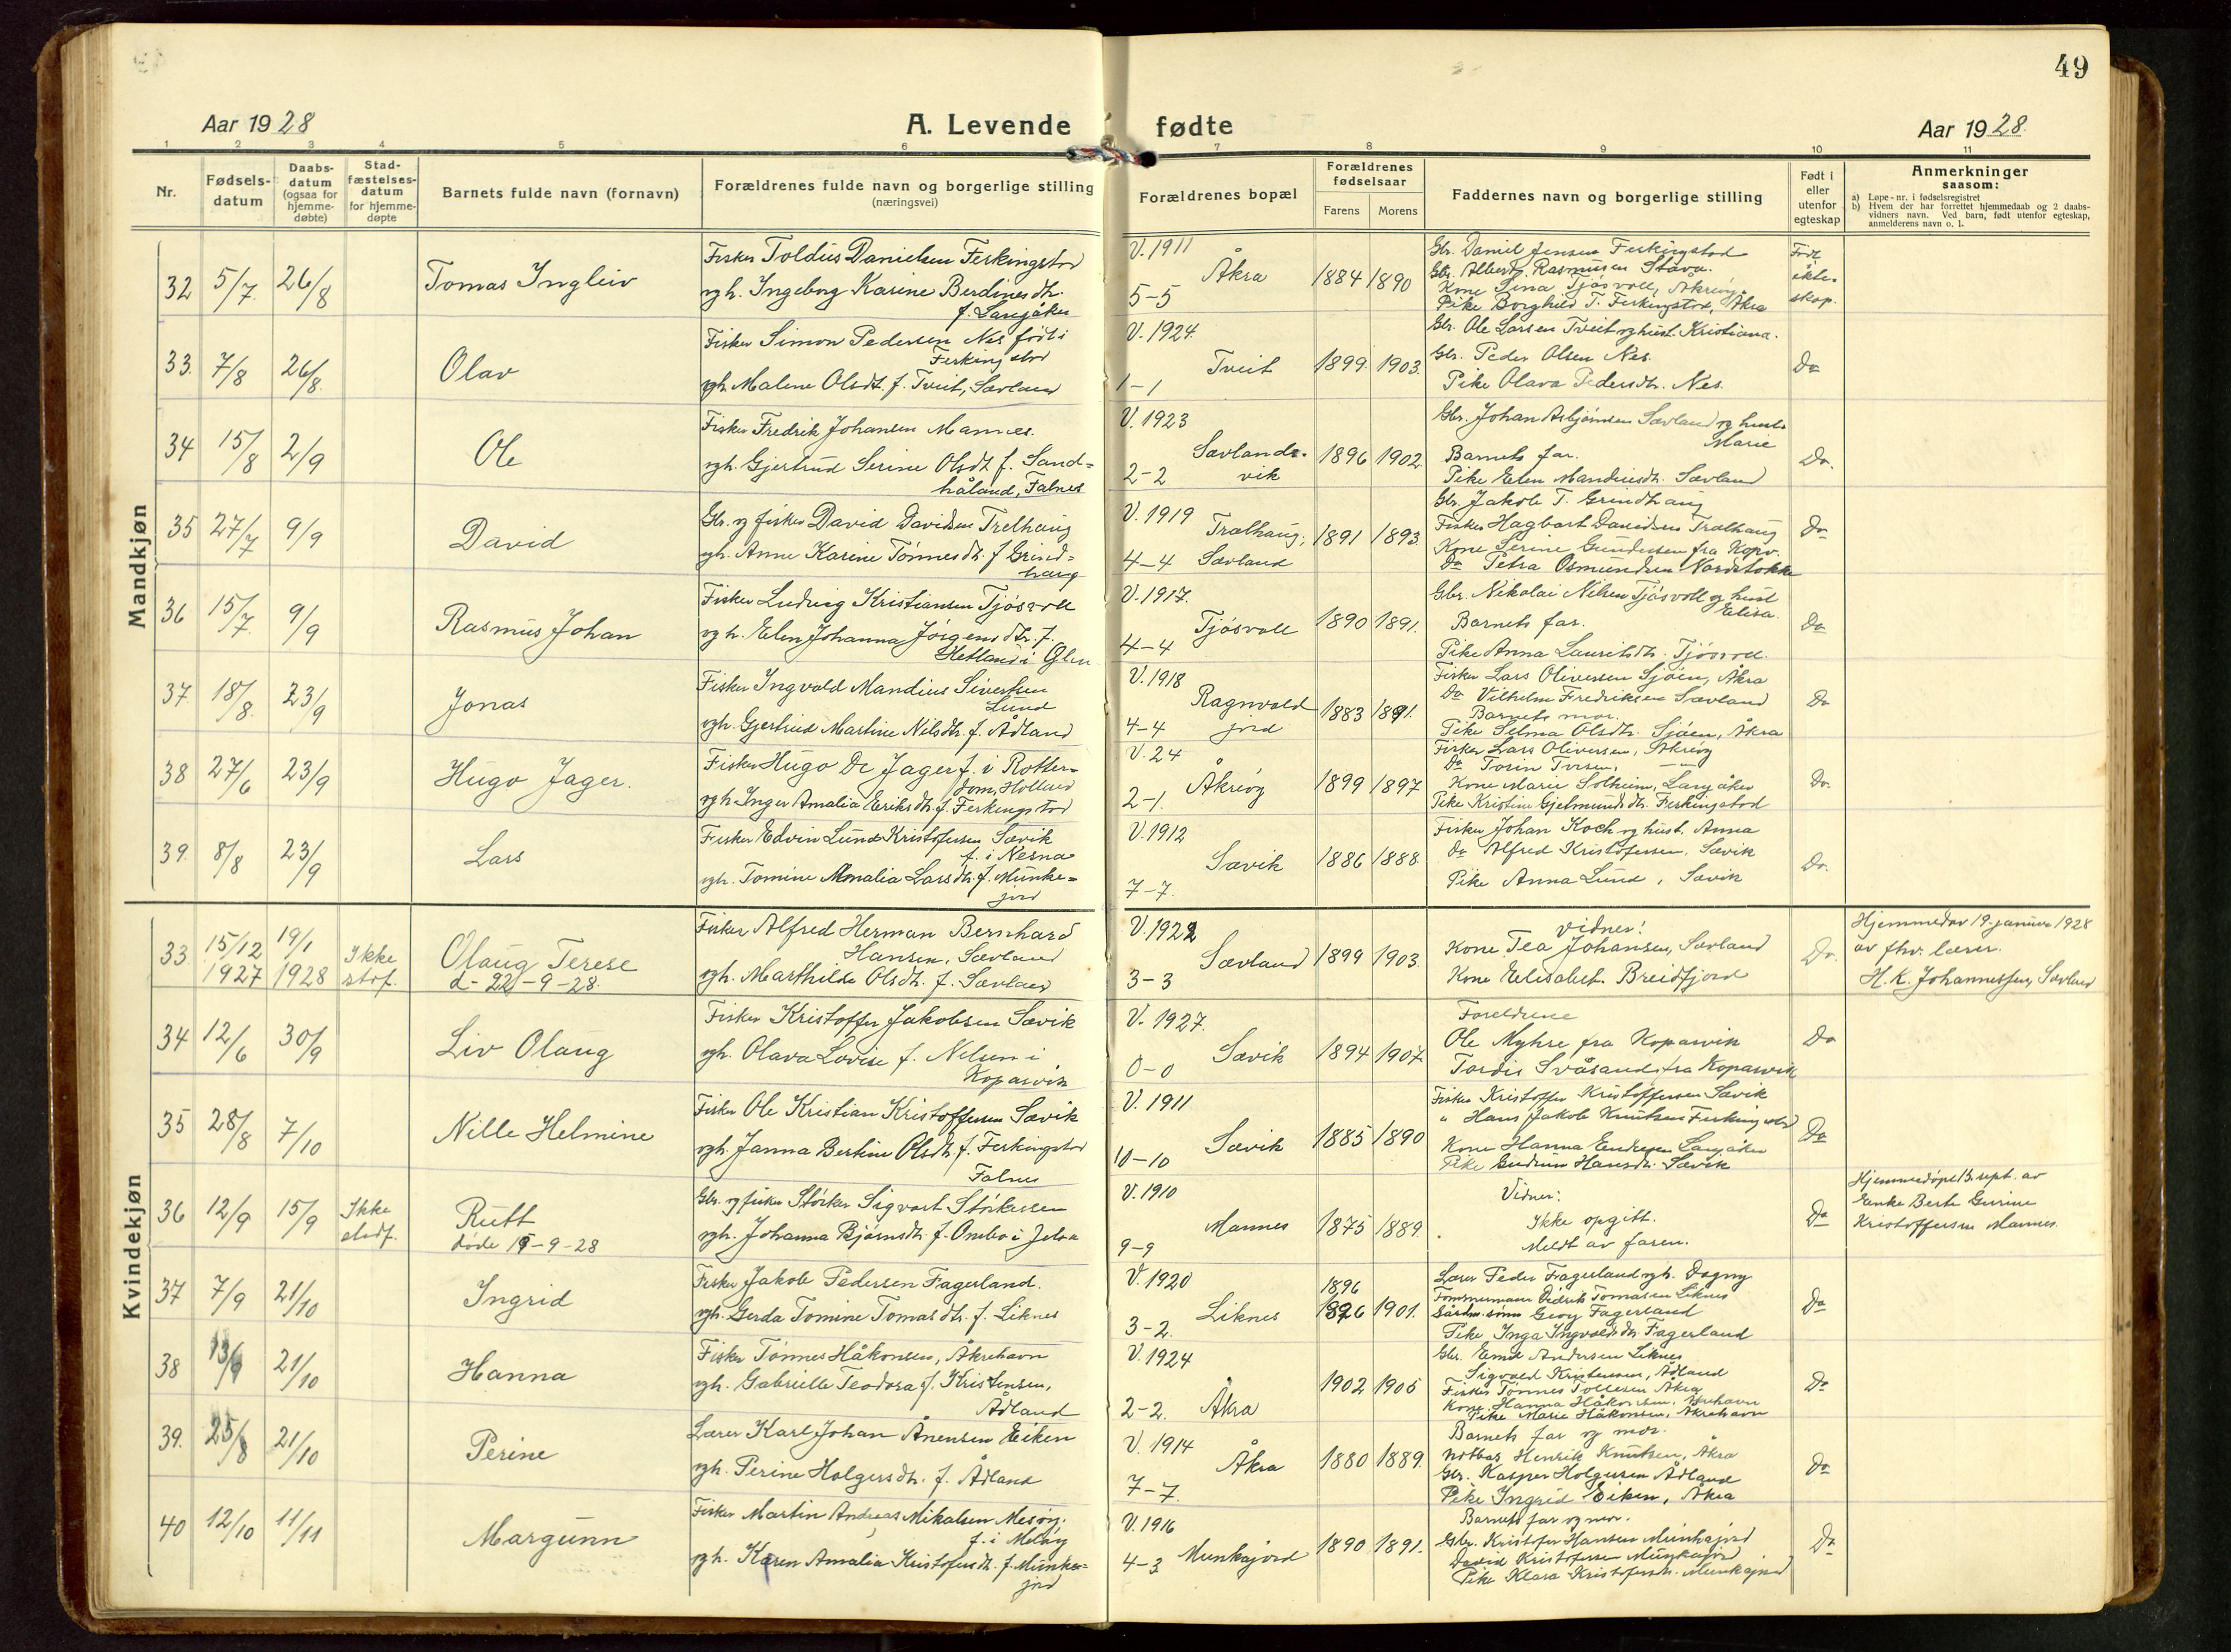 49
Aar 1928
A. Levende fødte
Aar 1928.
1 2 3 4 5 6 7 8 9 10 11
Nr.
Fødsels-
datum
Daabs-
datum
(ogsaa for
hjemme-
døbte)
Stad-
fæstelses-
datum
for hjemme-
døpte
Barnets fulde navn (fornavn)
Forældrenes fulde navn og borgerlige stilling
(næringsvei)
Forældrenes bopæl
Forældrenes
fødselsaar
Farens Morens
Faddernes navn og borgerlige stilling
Født i
eller
utenfor
egteskap
Anmerkninger
saasom:
a) Løpe-nr. i fødselsregistret
b) Hvem der har forrettet hjemmedaab og 2 daabs-
vidners navn. Ved barn, født utenfor egteskap,
anmelderens navn o. l.
Mandkjøn
32 5/7 26/8
Tomas Ingleiv
Fisker Toldus Danielsen Ferkingstad
og h. Ingeborg Karine Berdinesdtr.
f. Langåker
V. 1911
Åkra
5-5
1884 1890
Gbr. Daniel Jensen Ferkingstad
Gbr. Albert Rasmusen Stava.
Kone Sina Tjøsvoll, Åkrehøy
Pike Borghild T. Ferkingstad, Åkra
Født
ekte-
skap.
33. 7/8 26/8.
Olav
Fisker Simon Pedersen Nes født i
Ferkingstad
og h. Malene Olsdt. f. Tveit, Sævland
V. 1924.
Tveit
1-1
1899. 1903.
Gbr. Ole Larsen Tveit og hust. Kristiana.
Gbr. Peder Olsen Nes.
Pike Olava Pedersdtr. Nes.
Do
34 15/8 2/9
Ole
Fisker Fredrik Johansen Mannes.
og h. Gjertrud Serine Olsdt. f. Sand-
håland, Falnes
V. 1923
Sævlands-
vik
2-2
1896 1902.
Gbr. Johan Asbjørnsen Sævland og hust.
Marie
Barnets far.
Pike Elen Mandiusdtr. Sævland
Do.
35 27/7 9/9
David
Gbr. og fisker David Davidsen Trælhaug
og h. Anne Karine Tønnesdtr. f. Grind-
haug
V. 1919
Trælhaug,
4-4 Sævland
1891 1893.
Gbr. Jakob T. Grindhaug
Fisker Hagbart Davidsen Trælhaug
Kone Serine Gundersen fra Kopv.
Do Petra Osmundsen Nordstokke
Do
36 15/7. 9/9
Rasmus Johan
Fisker Ludvig Kristiansen Tjøsvoll
og h. Elen Johanna Jørgensdtr. f.
Hetland i
V. 1917.
Tjøsvoll
4-4
1890 1891.
Gbr. Nikolai Nilsen Tjøsvoll og hust
Elisa.
Barnets far.
Pike Anna Lauritsdtr. Tjøsvoll.
Do
37. 18/8. 23/9
Jonas
Fisker Ingvald Mandius Sivertsen
Lund
og h. Gjertrud Martine Nilsdtr. f. Ådland
V. 1918
Ragnvald
jord
4-4
1883 1891.
Fisker Lars Oliversen Sjøen, Åkra
Do Vilhelm Fredriksen Sævland
Barnets mor.
Pike Selma Olsdtr. Sjøen, Åkra
Do
38 27/6 23/9
Hugo Jager.
Fisker Hugo De Jager f. i Rotter-
dam, Holland
og h. Inger Amalia Eriksdtr. f. Ferkingstad
V. 24
Åkrøy
2-1.
1899 1897
Fisker Lars Oliversen, Åkrøy
Do Torin Torsen,
Kone Marie Solheim, Langåker
Pike Kristine Gjelmundsdtr. Ferkingstad
Do.
39. 8/8 23/9
Lars
Fisker Edvin Lund Kristofersen Sævik
f. i Nesna
og h. Tomine Amalia Larsdtr. f. Munke-
jord
V. 1912
Sævik
7-7.
1886 1888
Fisker Johan Koch og hust. Anna
Do Alfred Kristofersen. Sævik
Pike Anna Lund, Sævik
Do.
Kvindekjøn
33. 15/12 1927 19/1 1928 Ikke
stdf.
Olaug Terese
d- 22-9-28.
Fisker Alfred Herman Bernhard
Hansen, Sævland
og h. Marthilde Olsdtr. f. Sævland
V. 1922
Sævland
3-3
1899 1903.
vidner:
Kone Tea Johansen, Sævland
Kone Elisabet Breidfjord
Do.
Hjemmedøv 19. januar 1928
av fhv. lærer.
H. K. Johannessen, Sævland
34 12/6 30/9
Liv Olaug
Fisker Kristoffer Jakobsen Sævik
og h. Olava Lovise f. Nilsen i
Kopervik
V. 1927.
Sævik
0-0
1894 1907.
Foreldrene
Ole Myhre fra Kopervik
Tordis Svåsand fra Kopervik
Do
35 28/8 7/10
Nille Helmine
Fisker Ole Kristian Kristoffersen Sævik
og h. Janna Bertine Olsdtr. f. Ferkingstad
Falnes
V. 1911
Sævik
10-10
1885 1890
Fisker Kristoffer Kristoffersen Sævik
" Hans Jakob Knutsen Ferkingstad
Kone Hanna Endresen Langåker
Pike Gudrun Hansdtr. Sævik
Do
36 12/9 15/9 Ikke
stdf.
Rutt
døde 15-9-28
Gbr. og fisker Størker Sigvart Størkersen
og h. Johanna Bjørnsdtr. f. Ombo i Jelsa
V. 1910
Mannes
9-9
1875 1889.
Vidner:
Ikke opgitt.
Meldt av faren.
Do
Hjemmedøpt 13. sept. av
Enke Berte Gurine
Kristoffersen Mannes.
37 7/9 21/10
Ingrid
Fisker Jakob Pedersen Fagerland.
og h. Gerda Tomine Tomasdtr. f. Liknes
V. 1920
Liknes
3-2.
1896
1896 1901.
Lærer Peder Fagerland og h. Dagny
Tømmermann Didrik Tomasen Liknes
Gårdm. sønn Georg Fagerland
Pike Inga Ingvaldsdtr. Fagerland
Do
38 13/9 21/10
Hanna
Fisker Tønnes Håkonsen, Åkrehavn
og h. Gabrielle Teodora f. Kristensen,
Ådland
V. 1924
2-2. Åkra
1902 1905
Gbr. Emil Andersen Liknes
Sigvald Kristensen, Ådland
Fisker Tønnes Tollesen Åkra
Kone Hanna Håkonsen, Åkrehavn
Pike Marie Håkonsen, Åkrehavn
Do
39. 25/8 21/10
Perine
Lærer Karl Johan Ånensen Eiken
og h. Perine Holgersdtr. f. Ådland
V. 1914
Åkra
7-7.
1880 1889.
Barnets far og mor.
Notbas Henrik Knutsen, Åkra
Gbr. Kasper Holgersen Ådland
Pike Ingrid Eiken, Åkra
Do
40 12/10 11/11
Margunn
Fisker Martin Andreas Mikalsen Mesøy.
f. i Meløy
og h. Karen Amalia Kristofersdtr. f. Munke-
jord
V. 1916
4-3 Munkajord
1890. 1891.
Barnets far og mor.
Gbr. Kristofer Hansen Munkajord
David Kristofersen Munkajord
Pike Klara Kristofersdtr. Munkajord
Do